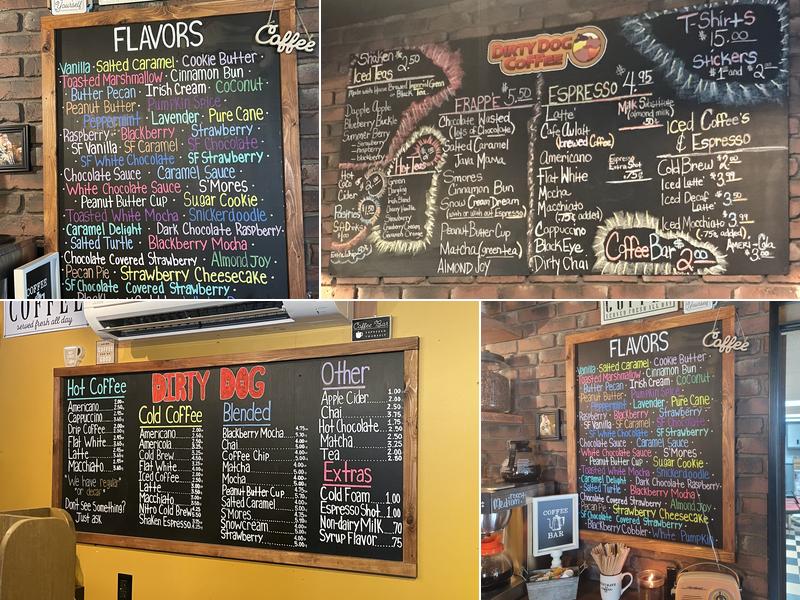 Yourself
Coffee
FLAVORS
Vanilla · Salted Caramel · Cookie Butter ·
Toasted Marshmallow · Cinnamon Bun ·
Butter Pecan · Irish Cream · Coconut
Peanut Butter · Pumpkin Spice ·
Peppermint · Lavender · Pure Cane
Raspberry · Blackberry · Strawberry
SF Vanilla · SF Caramel · SF Chocolate
SF White Chocolate · SF Strawberry
Chocolate Sauce · Caramel Sauce
White Chocolate Sauce · S'Mores
Peanut Butter Cup · Sugar Cookie
Toasted White Mocha · Snickerdoodle
Caramel Delight · Dark Chocolate Raspberry
Salted Turtle · Blackberry Mocha
Chocolate Covered Strawberry · Almond Joy
Pecan Pie · Strawberry Cheesecake
SF Chocolate Covered Strawberry
COFFEE
Shaken $2.50
Iced Teas
Made with House Brewed Imperial Green
Black Tea
Dapple Apple
Blueberry Buckle
Summer Berry
- Strawberry
- raspberry
- blackberry
Hot Teas
Hot
Coco
Cider
$2.50
Pastries
DIRTY DOG
COFFEE
FRAPPE $5.50
Chocolate Wasted
(lots of Chocolate)
Salted Caramel
Java Mama
Smores
Cinnamon Bun
Snow Cream Dream
(with or with out Espresso)
Peanut Butter Cup
Matcha (green tea)
ALMOND JOY
ESPRESSO 4.95
Latte
Cafe Aulait
(brewed Coffee)
Americano
Flat White
Mocha
Macchiato
(.75¢ added)
Cappuccino
Black Eye
Dirty Chai
Milk Substitute
almond milk
.50¢
Espresso
Extra Shot
.75¢
T-Shirts
$15.00
Stickers
$1.00 and $2.00
Iced Coffee's
& Espresso
Cold Brew $2.50
Iced Latte $3.99
Iced Decaf $3.50
Latte
Iced Macchiato $3.99
(.75¢ added)
AMERI-Cola
$3.00
Coffee Bar $2.00
COFFEE
served fresh all day
Coffee Bar
DIRTY DOG
Hot Coffee
Americano
Cappuccino
Drip Coffee
Flat White
Latte
Macchiato
*We have regular*
*or decaf*
Don't see Something?
Just ask
Cold Coffee
Americano
Americola
Cold Brew
Flat White
Iced Coffee
Latte
Macchiato
Nitro Cold Brew
Shaken Espresso
Blended
Blackberry Mocha
Chai
Coffee Chip
Matcha
Mocha
Peanut Butter Cup
Salted Caramel
S'Mores
Snowcream
Strawberry
Other
Apple Cider 1.00
Chai
Hot Chocolate
Matcha
Tea
Extras
Cold Foam 1.00
Espresso Shot 1.00
Non-dairy Milk .70
Syrup Flavor .75
SERVED FRESH ALL DAY
Yourself
Coffee
FLAVORS
Vanilla · Salted Caramel · Cookie Butter ·
Toasted Marshmallow · Cinnamon Bun ·
Butter Pecan · Irish Cream · Coconut
Peanut Butter · Pumpkin Spice ·
Peppermint · Lavender · Pure Cane
Raspberry · Blackberry · Strawberry
SF Vanilla · SF Caramel · SF Chocolate
SF White Chocolate · SF Strawberry
Chocolate Sauce · Caramel Sauce
White Chocolate Sauce · S'Mores
Peanut Butter Cup · Sugar Cookie
Toasted White Mocha · Snickerdoodle
Caramel Delight · Dark Chocolate Raspberry
Salted Turtle · Blackberry Mocha
Chocolate Covered Strawberry · Almond Joy
Pecan Pie · Strawberry Cheesecake
SF Chocolate Covered Strawberry
Blackberry Cobbler · White Pumpkin
Medium
COFFEE
BAR